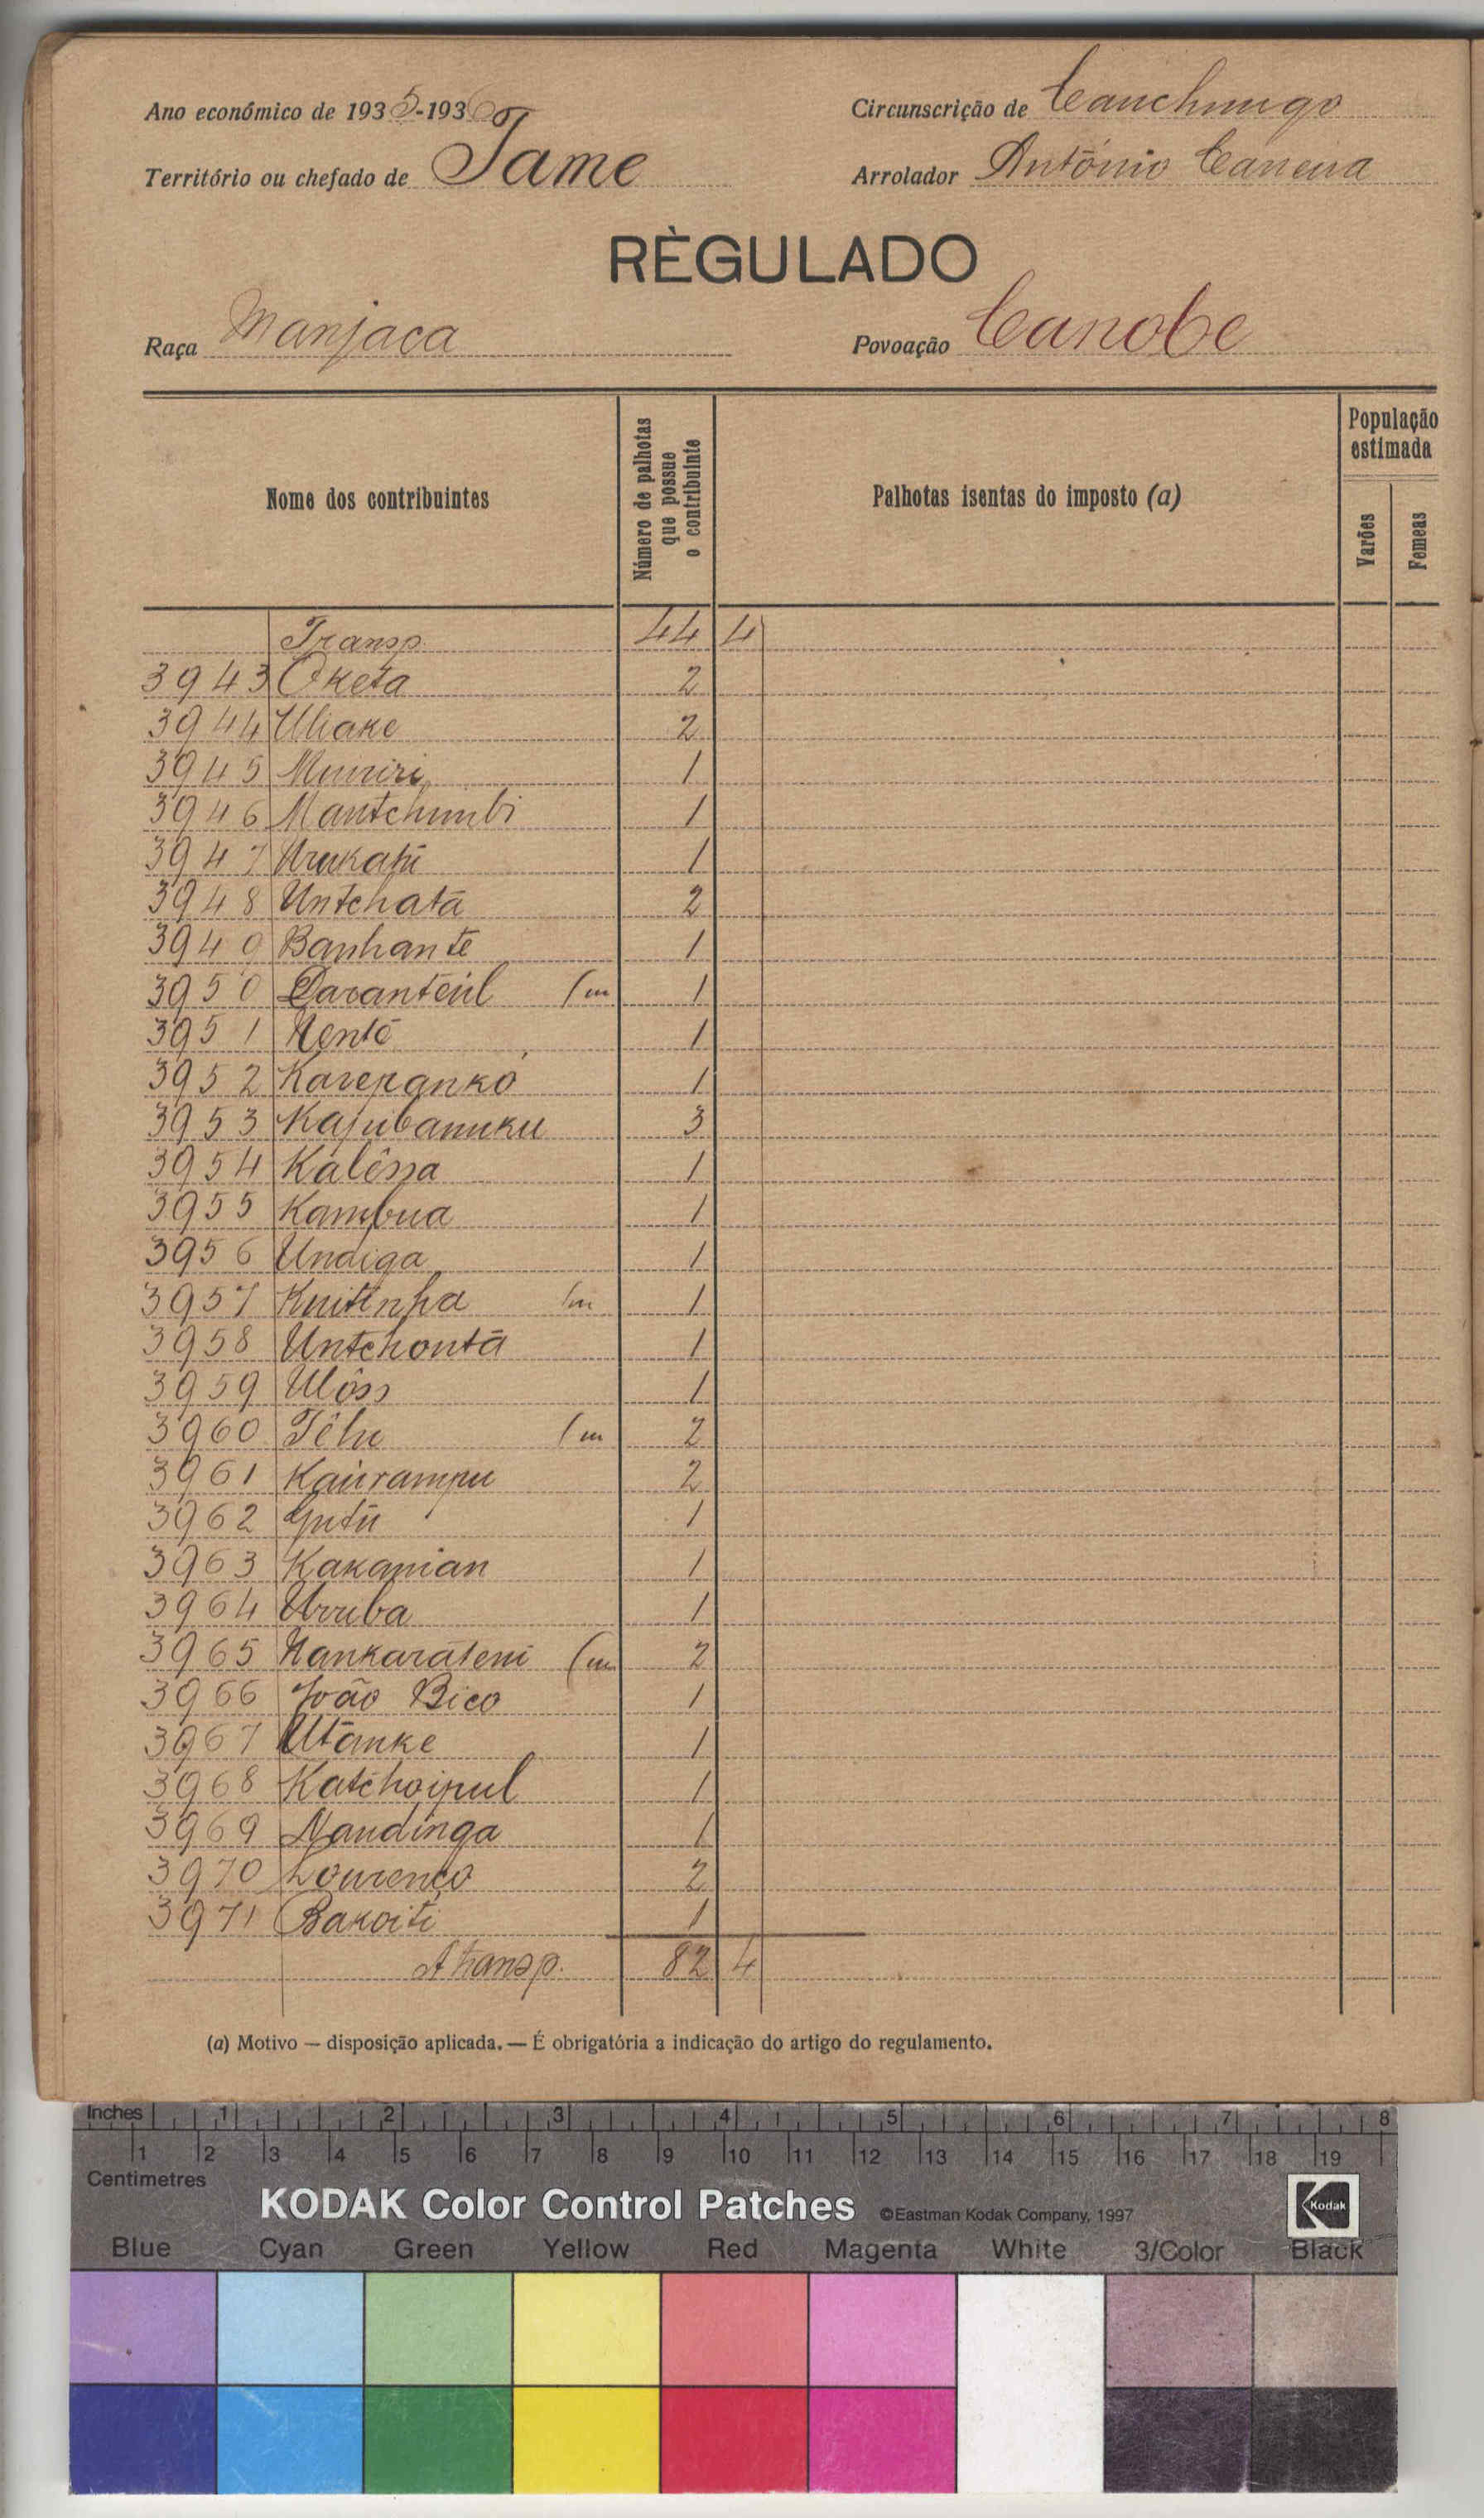 Ano económico de 1935-1936 Circunscrição de Canchungo
Território ou chefado de Tame Arrolador António Caneira
RÈGULADO
Raça Manjaca Povoação Canobe
Nome dos contribuintes
Número de palhotas que possue o contribuinte
Palhotas isentas do imposto (a)
População estimada
Varões
Femeas
Transp. 44 4
3943 Oketa 2
3944 Uliake 2
3945 Muniri 1
3946 Mantchumbi 1
3947 1
3948 Untchatá 2
3940 Banhante 1
3950 1
3951 Nentó 1
3952 1
3953 Kajubanuku 3
3954 Kalêssa 1
3955 Kambua 1
3956 Undiga 1
3957 1
3958 Untchontá 1
3959 Ulôss 1
3960 2
3961 Kairampu 2
3962 1
3963 Kakanian 1
3964 Uruba 1
3965 2
3966 João Bico 1
3967 Utanke 1
3968 Katchoipul 1
3969 Mandinga 1
3970 Lourenço 2
3971 Bakoiti 1
A transp. 82 4
(a) Motivo — disposição aplicada. — É obrigatória a indicação do artigo do regulamento.
Inches 1 2 3 4 5 6 7 8
1 2 3 4 5 6 7 8 9 10 11 12 13 14 15 16 17 18 19
Centimetres
KODAK Color Control Patches ©Eastman Kodak Company, 1997 Kodak
Blue Cyan Green Yellow Red Magenta White 3/Color Black